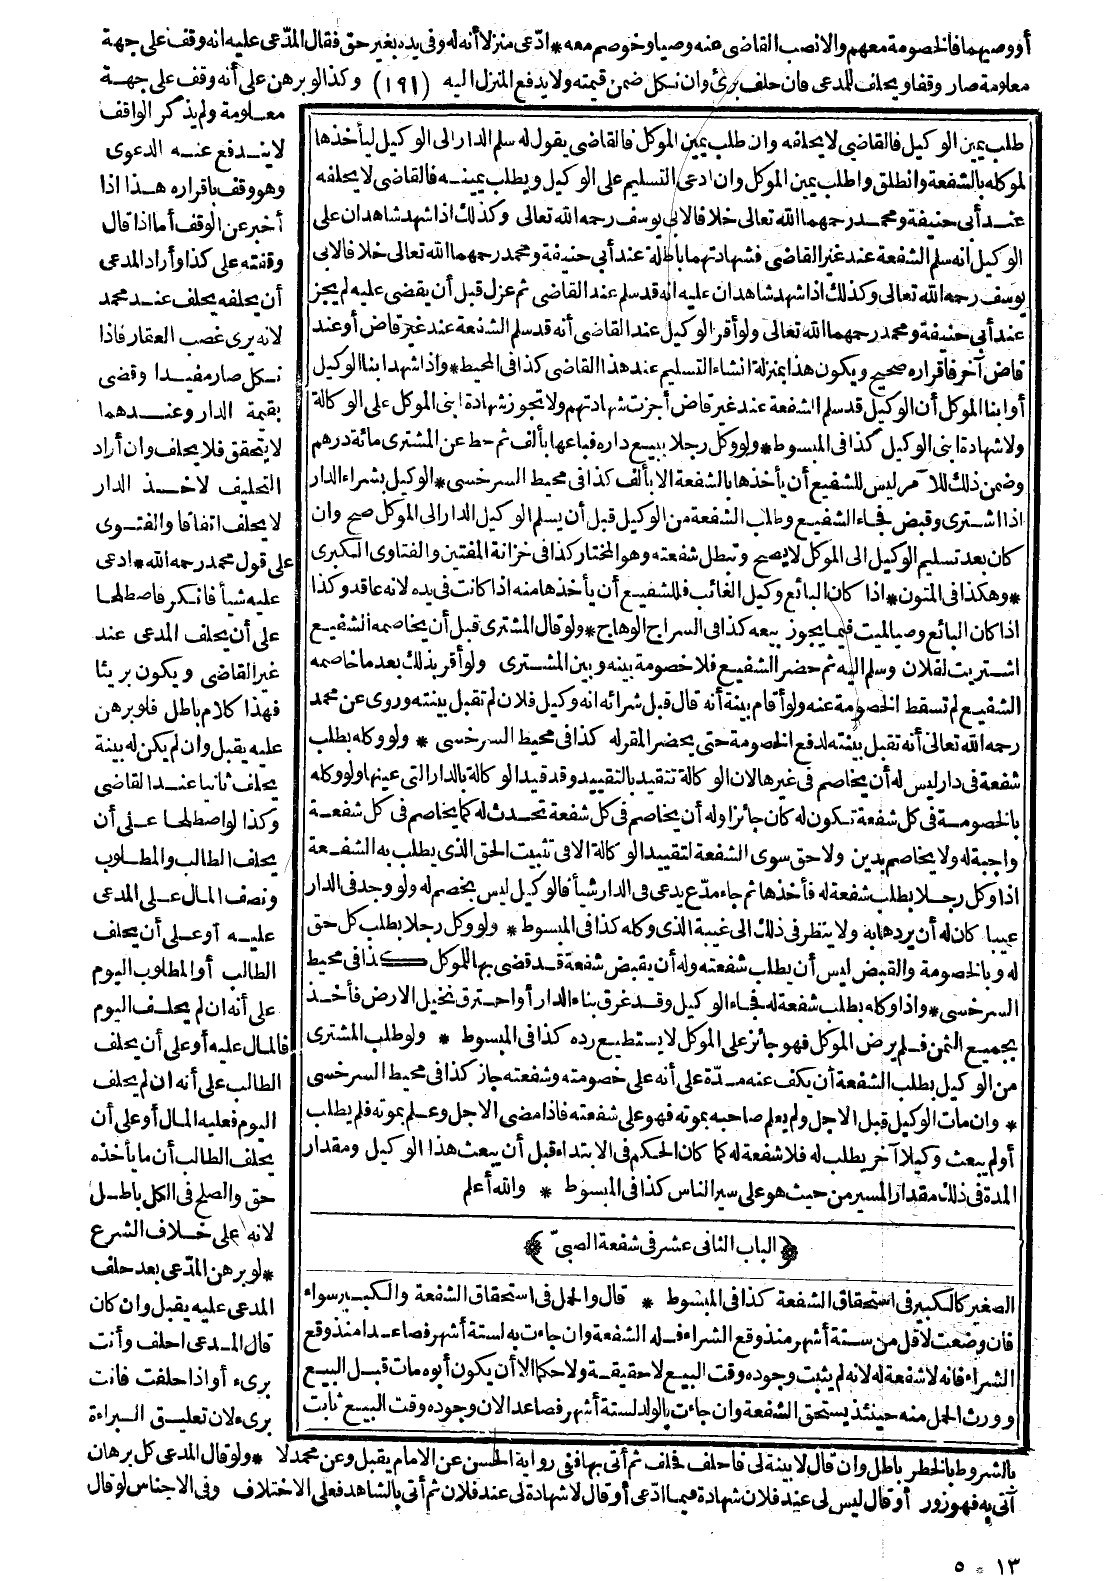 أو وصيهما فالخصومة معهم والانصب القاضى عنه وصيا وخوصم معه * ادّعى منزلا أنه له وفى يده بغير حق فقال المدّعى عليه انه وقف على جهة
معلومة صار وقفا ويحلف للمدعى فان حلف برئ وان نكل ضمن قيمته ولا يدفع المنزل اليه (١٩١) وكذا لو برهن على أنه وقف على جهة
معلومة ولم يذكر الواقف
لا يندفع عنه الدعوى
وهو وقف باقراره هذا اذا
أخبر عن الوقف أما اذا قال
وقفته على كذا وأراد المدعى
أن يحلفه يحلف عند محمد
لانه يرى غصب العقار فاذا
نكل صار مفيدا وقضى
بقيمة الدار وعندهما
لا يتحقق فلا يحلف وان أراد
التحليف لاخذ الدار
لا يحلف اتفاقا والفتوى
على قول محمد رحمه الله * ادعى
عليه شيأ فانكر فاصطلحا
على أن يحلف المدعى عند
غير القاضى ويكون بريئا
فهذا كلام باطل فلو برهن
عليه يقبل وان لم يكن له بينة
يحلف ثانيا عند القاضى
وكذا لو اصطلحا على أن
يحلف الطالب والمطلوب
ونصف المال على المدعى
عليه أو على أن يحلف
الطالب أو المطلوب اليوم
على أنه ان لم يحلف اليوم
فالمال عليه أو على أن يحلف
الطالب على أنه ان لم يحلف
اليوم فعليه المال أو على أن
يحلف الطالب أن ما يأخذه
حق والصلح فى الكل باطل
لانه على خلاف الشرع
* لو برهن المدّعى بعد حلف
المدعى عليه يقبل وان كان
قال المدعى احلف وأنت
برىء أو اذا حلفت فانت
برىء لان تعليق البراءة
طلب يمين الوكيل فالقاضى لا يحلفه وان طلب يمين الموكل فالقاضى يقول له سلم الدار الى الوكيل ليأخذها
لموكله بالشفعة وانطلق واطلب يمين الموكل وان ادعى التسليم على الوكيل ويطلب يمينه فالقاضى لا يحلفه
عند أبى حنيفة ومحمد رحمهما الله تعالى خلافا لابى يوسف رحمه الله تعالى وكذلك اذا شهد شاهدان على
الوكيل انه سلم الشفعة عند غير القاضى فشهادتهما باطلة عند أبى حنيفة ومحمد رحمهما الله تعالى خلافا لابى
يوسف رحمه الله تعالى وكذلك اذا شهد شاهدان عليه انه قد سلم عند القاضى ثم عزل قبل أن يقضى عليه لم يجز
عند أبى حنيفة ومحمد رحمهما الله تعالى ولو أقر الوكيل عند القاضى أنه قد سلم الشفعة عند غير قاض أو عند
قاض آخر فاقراره صحيح ويكون هذا بمنزلة انشاء التسليم عند هذا القاضى كذا فى المحيط * واذا شهد ابنا الوكيل
أو ابنا الموكل أن الوكيل قد سلم الشفعة عند غير قاض أجزت شهادتهم ولا تجوز شهادة ابنى الموكل على الوكالة
ولا شهادة ابنى الوكيل كذا فى المبسوط * ولو وكل رجلا ببيع داره فباعها بألف ثم حط عن المشترى مائة درهم
وضمن ذلك للآمر ليس للشفيع أن يأخذها بالشفعة الا بألف كذا فى محيط السرخسى * الوكيل بشراء الدار
اذا اشترى وقبض فجاء الشفيع وطلب الشفعة من الوكيل قبل أن يسلم الوكيل الدار الى الموكل صح وان
كان بعد تسليم الوكيل الى الموكل لا يصح وتبطل شفعته وهو المختار كذا فى خزانة المفتين والفتاوى الكبرى
* وهكذا فى المتون * اذا كان البائع وكيل الغائب فللشفيع أن يأخذها منه اذا كانت فى يده لانه عاقد وكذا
اذا كان البائع وصيا لميت فيما يجوز بيعه كذا فى السراج الوهاج * ولو قال المشترى قبل أن يخاصمه الشفيع
اشتريت لفلان وسلم اليه ثم حضر الشفيع فلا خصومة بينه وبين المشترى ولو أقر بذلك بعد ما خاصمه
الشفيع لم تسقط الخصومة عنه ولو أقام بينة أنه قال قبل شرائه انه وكيل فلان لم تقبل بينته وروى عن محمد
رحمه الله تعالى أنه تقبل بينته لدفع الخصومة حتى يحضر المقر له كذا فى محيط السرخسى * ولو وكله بطلب
شفعة فى دار ليس له أن يخاصم فى غيرها لان الوكالة تتقيد بالتقييد وقد قيد الوكالة بالدار التى عينها ولو وكله
بالخصومة فى كل شفعة تكون له كان جائزا وله أن يخاصم فى كل شفعة تحدث له كما يخاصم فى كل شفعة
واجبة له ولا يخاصم بدين ولا حق سوى الشفعة لتقييد الوكالة الا فى تثبيت الحق الذى يطلب به الشفعة
اذا وكل رجلا بطلب شفعة له فأخذها ثم جاء مدّع يدعى فى الدار شيأ فالوكيل ليس بخصم له ولو وجد فى الدار
عيبا كان له أن يردها به ولا ينتظر فى ذلك الى غيبة الذى وكله كذا فى المبسوط * ولو وكل رجلا بطلب كل حق
له وبالخصومة والقبض ليس أن يطلب شفعته وله أن يقبض شفعة قد قضى بها للموكل كذا فى محيط
السرخسى * واذا وكله بطلب شفعة له فجاء الوكيل وقد غرق بناء الدار أو احترق نخيل الارض فأخذ
بجميع الثمن فلم يرض الموكل فهو جائز على الموكل لا يستطيع رده كذا فى المبسوط * ولو طلب المشترى
من الوكيل بطلب الشفعة أن يكف عنه مدّة على أنه على خصومته وشفعته جاز كذا فى محيط السرخسى
* وان مات الوكيل قبل الاجل ولم يعلم صاحبه بموته فهو على شفعته فاذا مضى الاجل وعلم بموته فلم يطلب
أو لم يبعث وكيلا آخر يطلب له فلا شفعة له كما كان الحكم فى الابتداء قبل أن يبعث هذا الوكيل ومقدار
المدة فى ذلك مقدار المسير من حيث هو على سير الناس كذا فى المبسوط * والله أعلم
﴿الباب الثانى عشر فى شفعة الصبىّ﴾
الصغير كالكبير فى استحقاق الشفعة كذا فى المبسوط * قال والحمل فى استحقاق الشفعة والكبير سواء
فان وضعت لاقل من ستة أشهر منذ وقع الشراء فله الشفعة وان جاءت به لستة أشهر فصاعدا منذ وقع
الشراء فانه لا شفعة له لانه لم يثبت وجوده وقت البيع لا حقيقة ولا حكما الا أن يكون أبوه مات قبل البيع
وورث الحمل منه حينئذ يستحق الشفعة وان جاءت بالولد لستة أشهر فصاعدا لان وجوده وقت البيع ثابت
بالشروط بالخطر باطل وان قال لا بينة لى فاحلف فحلف ثم أتى بها ففى رواية الحسن عن الامام يقبل وعن محمد لا * ولو قال المدعى كل برهان
آتى به فهو زور أو قال ليس لى عند فلان شهادة فيما ادّعى أو قال لا شهادة لى عند فلان ثم أتى بالشاهد فعلى الاختلاف وفى الاجناس لو قال
١٣ * ٥